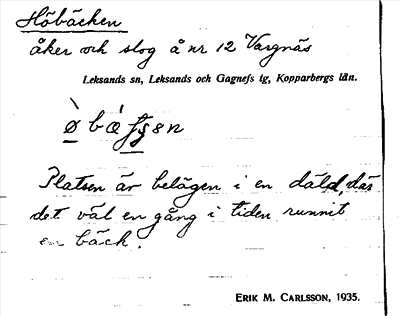 Höbäcken
åker och slog å nr 12 Vargnäs
Leksands sn, Leksands och Gagnefs tg, Kopparbergs län.
Platsen är belägen i en däld, där
det väl en gång i tiden runnit
en bäck.
ERIK M. CARLSSON, 1935.